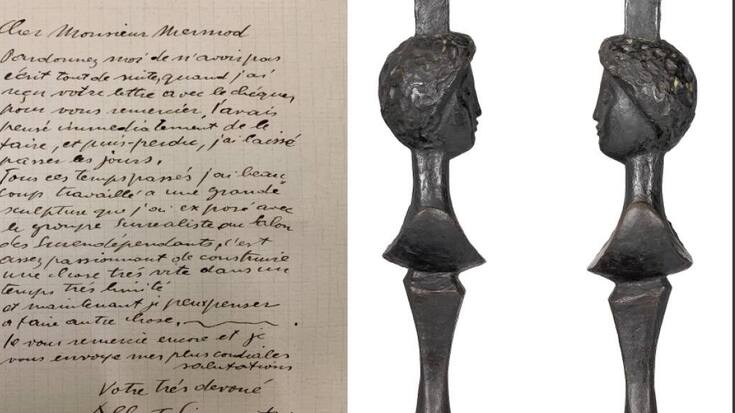 Cher Monsieur Mermod
Pardonnez moi de n'avoir pas
écrit tout de suite, quand j'ai
reçu votre lettre avec le chèque,
pour vous remercier, j'avais
pensé immediatement de le
faire, et puis perdu, j'ai laissé
passer les jours.
Tous ces temps passés j'ai beau
coup travaillé a une grande
sculpture que j'ai exposé avec
le groupe surrealiste au Salon
des Surendépendants, c'est
assez passionnant de construire
une chose trés vite dans un
temps trés limité
et maintenant je peux penser
a faire autre chose.
Je vous remercie encore et je
vous envoye mes plus cordiales
salutations
Votre trés devoué